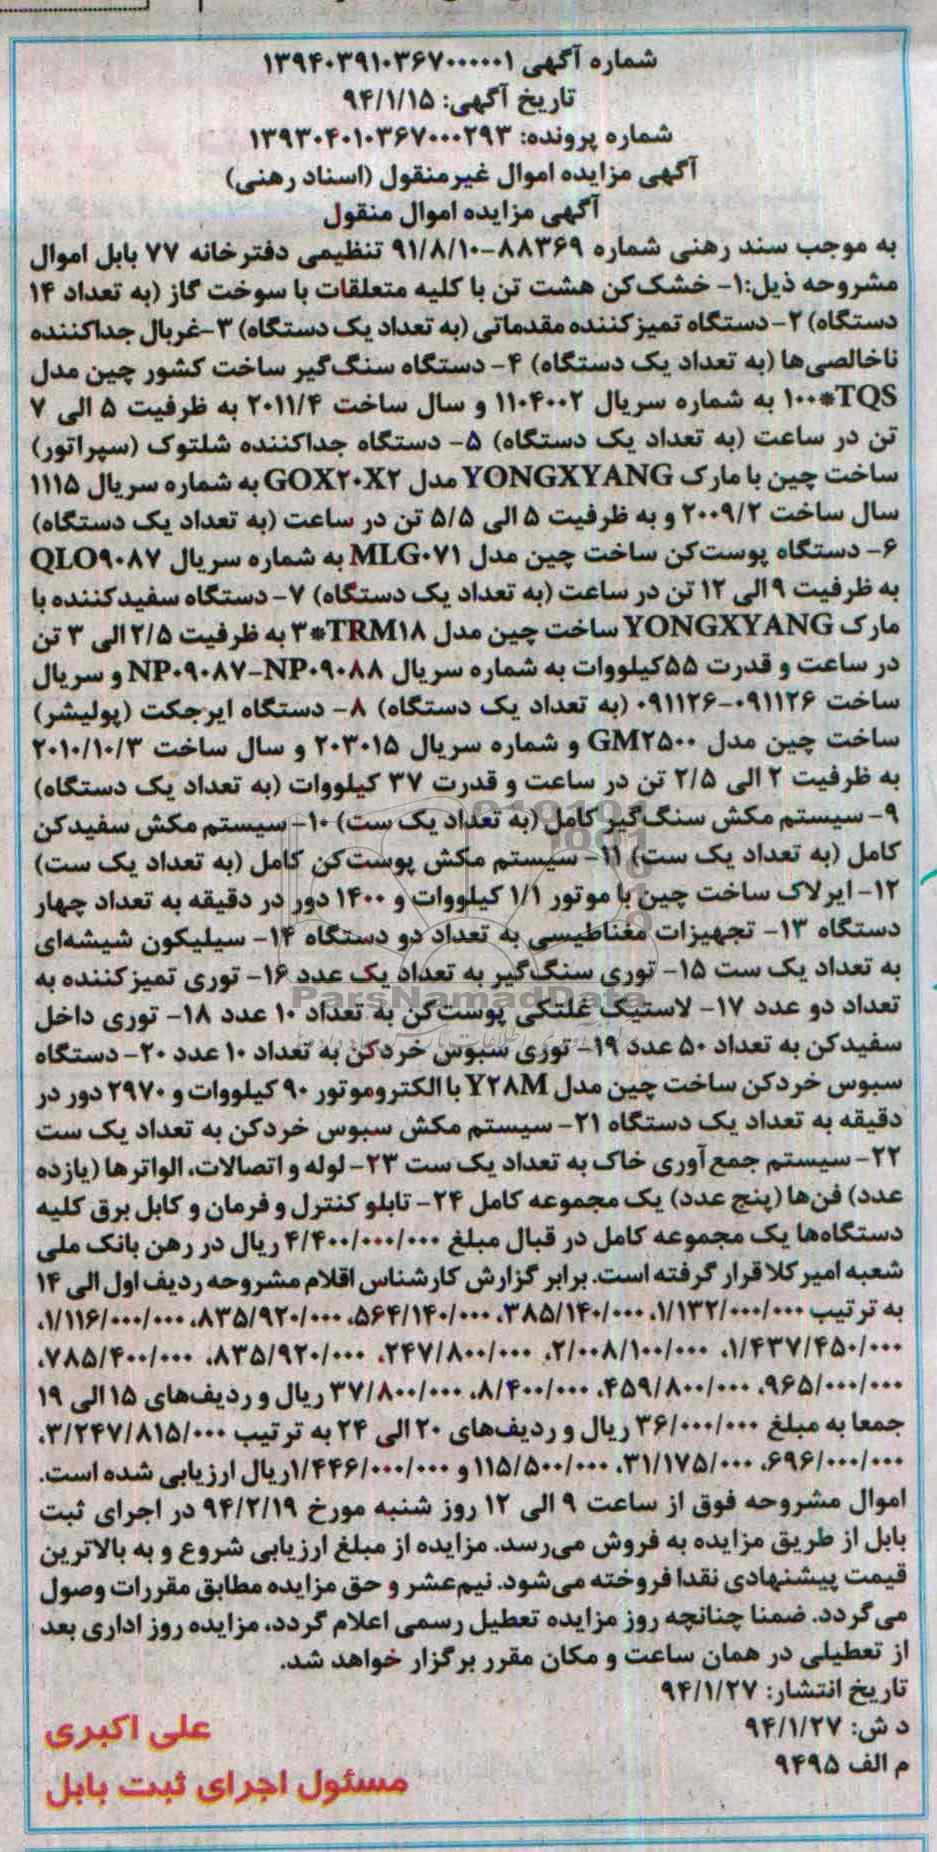 شماره آگهی ۱۳۹۴۰۳۹۱۰۳۶۷۰۰۰۰۰۱
تاریخ آگهی: ۹۴/۱/۱۵
شماره پرونده: ۱۳۹۳۰۴۰۱۰۳۶۷۰۰۰۲۹۳
آگهی مزایده اموال غیرمنقول (اسناد رهنی)
آگهی مزایده اموال منقول
به موجب سند رهنی شماره ۸۸۳۶۹-۹۱/۸/۱۰ تنظیمی دفترخانه ۷۷ بابل اموال
مشروحه ذیل:۱- خشک‌کن هشت تن با کلیه متعلقات با سوخت گاز (به تعداد ۱۴
دستگاه) ۲-دستگاه تمیزکننده مقدماتی (به تعداد یک دستگاه) ۳-غربال جداکننده
ناخالصی‌ها (به تعداد یک دستگاه) ۴- دستگاه سنگ‌گیر ساخت کشور چین مدل
TQS*۱۰۰ به شماره سریال ۱۱۰۴۰۰۲ و سال ساخت ۲۰۱۱/۴ به ظرفیت ۵ الی ۷
تن در ساعت (به تعداد یک دستگاه) ۵- دستگاه جداکننده شلتوک (سپراتور)
ساخت چین با مارک YONGXYANG مدل GOX۲۰X۲ به شماره سریال ۱۱۱۵
سال ساخت ۲۰۰۹/۲ و به ظرفیت ۵ الی ۵/۵ تن در ساعت (به تعداد یک دستگاه)
۶- دستگاه پوست‌کن ساخت چین مدل MLG۰۷۱ به شماره سریال QLO۹۰۸۷
به ظرفیت ۹ الی ۱۲ تن در ساعت (به تعداد یک دستگاه) ۷- دستگاه سفیدکننده با
مارک YONGXYANG ساخت چین مدل TRM۱۸*۳ به ظرفیت ۲/۵ الی ۳ تن
در ساعت و قدرت ۵۵کیلووات به شماره سریال NP۰۹۰۸۷-NP۰۹۰۸۸ و سریال
ساخت ۰۹۱۱۲۶-۰۹۱۱۲۶ (به تعداد یک دستگاه) ۸- دستگاه ایرجکت (پولیشر)
ساخت چین مدل GM۲۵۰۰ و شماره سریال ۲۰۳۰۱۵ و سال ساخت ۲۰۱۰/۱۰/۳
به ظرفیت ۲ الی ۲/۵ تن در ساعت و قدرت ۳۷ کیلووات (به تعداد یک دستگاه)
۹- سیستم مکش سنگ‌گیر کامل (به تعداد یک ست) ۱۰- سیستم مکش سفیدکن
کامل (به تعداد یک ست) ۱۱- سیستم مکش پوست‌کن کامل (به تعداد یک ست)
۱۲- ایرلاک ساخت چین با موتور ۱/۱ کیلووات و ۱۴۰۰ دور در دقیقه به تعداد چهار
دستگاه ۱۳- تجهیزات مغناطیسی به تعداد دو دستگاه ۱۴- سیلیکون شیشه‌ای
به تعداد یک ست ۱۵- توری سنگ‌گیر به تعداد یک عدد ۱۶- توری تمیزکننده به
تعداد دو عدد ۱۷- لاستیک غلتکی پوست‌کن به تعداد ۱۰ عدد ۱۸- توری داخل
سفیدکن به تعداد ۵۰ عدد ۱۹- توری سبوس خردکن به تعداد ۱۰ عدد ۲۰- دستگاه
سبوس خردکن ساخت چین مدل Y۲۸M با الکتروموتور ۹۰ کیلووات و ۲۹۷۰ دور در
دقیقه به تعداد یک دستگاه ۲۱- سیستم مکش سبوس خردکن به تعداد یک ست
۲۲- سیستم جمع‌آوری خاک به تعداد یک ست ۲۳- لوله و اتصالات، الواترها (یازده
عدد) فن‌ها (پنج عدد) یک مجموعه کامل ۲۴- تابلو کنترل و فرمان و کابل برق کلیه
دستگاه‌ها یک مجموعه کامل در قبال مبلغ ۴/۴۰۰/۰۰۰/۰۰۰ ریال در رهن بانک ملی
شعبه امیرکلا قرار گرفته است. برابر گزارش کارشناس اقلام مشروحه ردیف اول الی ۱۴
به ترتیب ۱/۱۳۲/۰۰۰/۰۰۰، ۳۸۵/۱۴۰/۰۰۰، ۵۶۴/۱۴۰/۰۰۰، ۸۳۵/۹۲۰/۰۰۰، ۱/۱۱۶/۰۰۰/۰۰۰،
۱/۴۳۷/۴۵۰/۰۰۰، ۲/۰۰۸/۱۰۰/۰۰۰، ۲۴۷/۸۰۰/۰۰۰، ۸۳۵/۹۲۰/۰۰۰، ۷۸۵/۴۰۰/۰۰۰،
۹۶۵/۰۰۰/۰۰۰، ۴۵۹/۸۰۰/۰۰۰، ۸/۴۰۰/۰۰۰، ۳۷/۸۰۰/۰۰۰ ریال و ردیف‌های ۱۵ الی ۱۹
جمعا به مبلغ ۳۶/۰۰۰/۰۰۰ ریال و ردیف‌های ۲۰ الی ۲۴ به ترتیب ۳/۲۴۷/۸۱۵/۰۰۰،
۶۹۶/۰۰۰/۰۰۰، ۳۱/۱۷۵/۰۰۰، ۱۱۵/۵۰۰/۰۰۰ و ۱/۴۴۶/۰۰۰/۰۰۰ریال ارزیابی شده است.
اموال مشروحه فوق از ساعت ۹ الی ۱۲ روز شنبه مورخ ۹۴/۲/۱۹ در اجرای ثبت
بابل از طریق مزایده به فروش می‌رسد. مزایده از مبلغ ارزیابی شروع و به بالاترین
قیمت پیشنهادی نقدا فروخته می‌شود. نیم‌عشر و حق مزایده مطابق مقررات وصول
می‌گردد. ضمنا چنانچه روز مزایده تعطیل رسمی اعلام گردد، مزایده روز اداری بعد
از تعطیلی در همان ساعت و مکان مقرر برگزار خواهد شد.
تاریخ انتشار: ۹۴/۱/۲۷
د ش: ۹۴/۱/۲۷
م الف ۹۴۹۵
علی اکبری
مسئول اجرای ثبت بابل
ParsNamadData